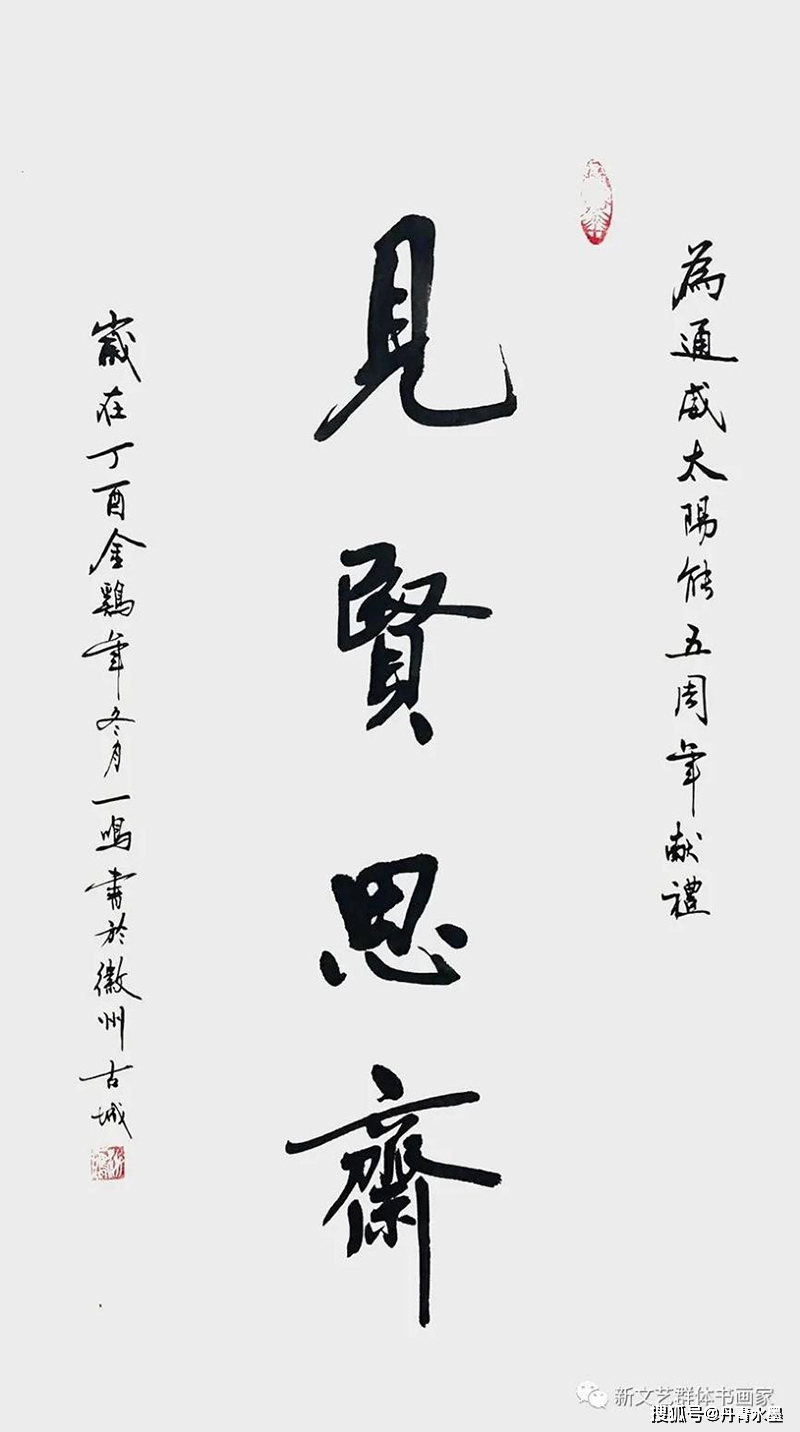 為通威太陽能五周年献禮
見賢思齋
歲在丁酉金鷄年冬月一鳴書於徽州古城
新文艺群体书画家
搜狐号@丹青水墨